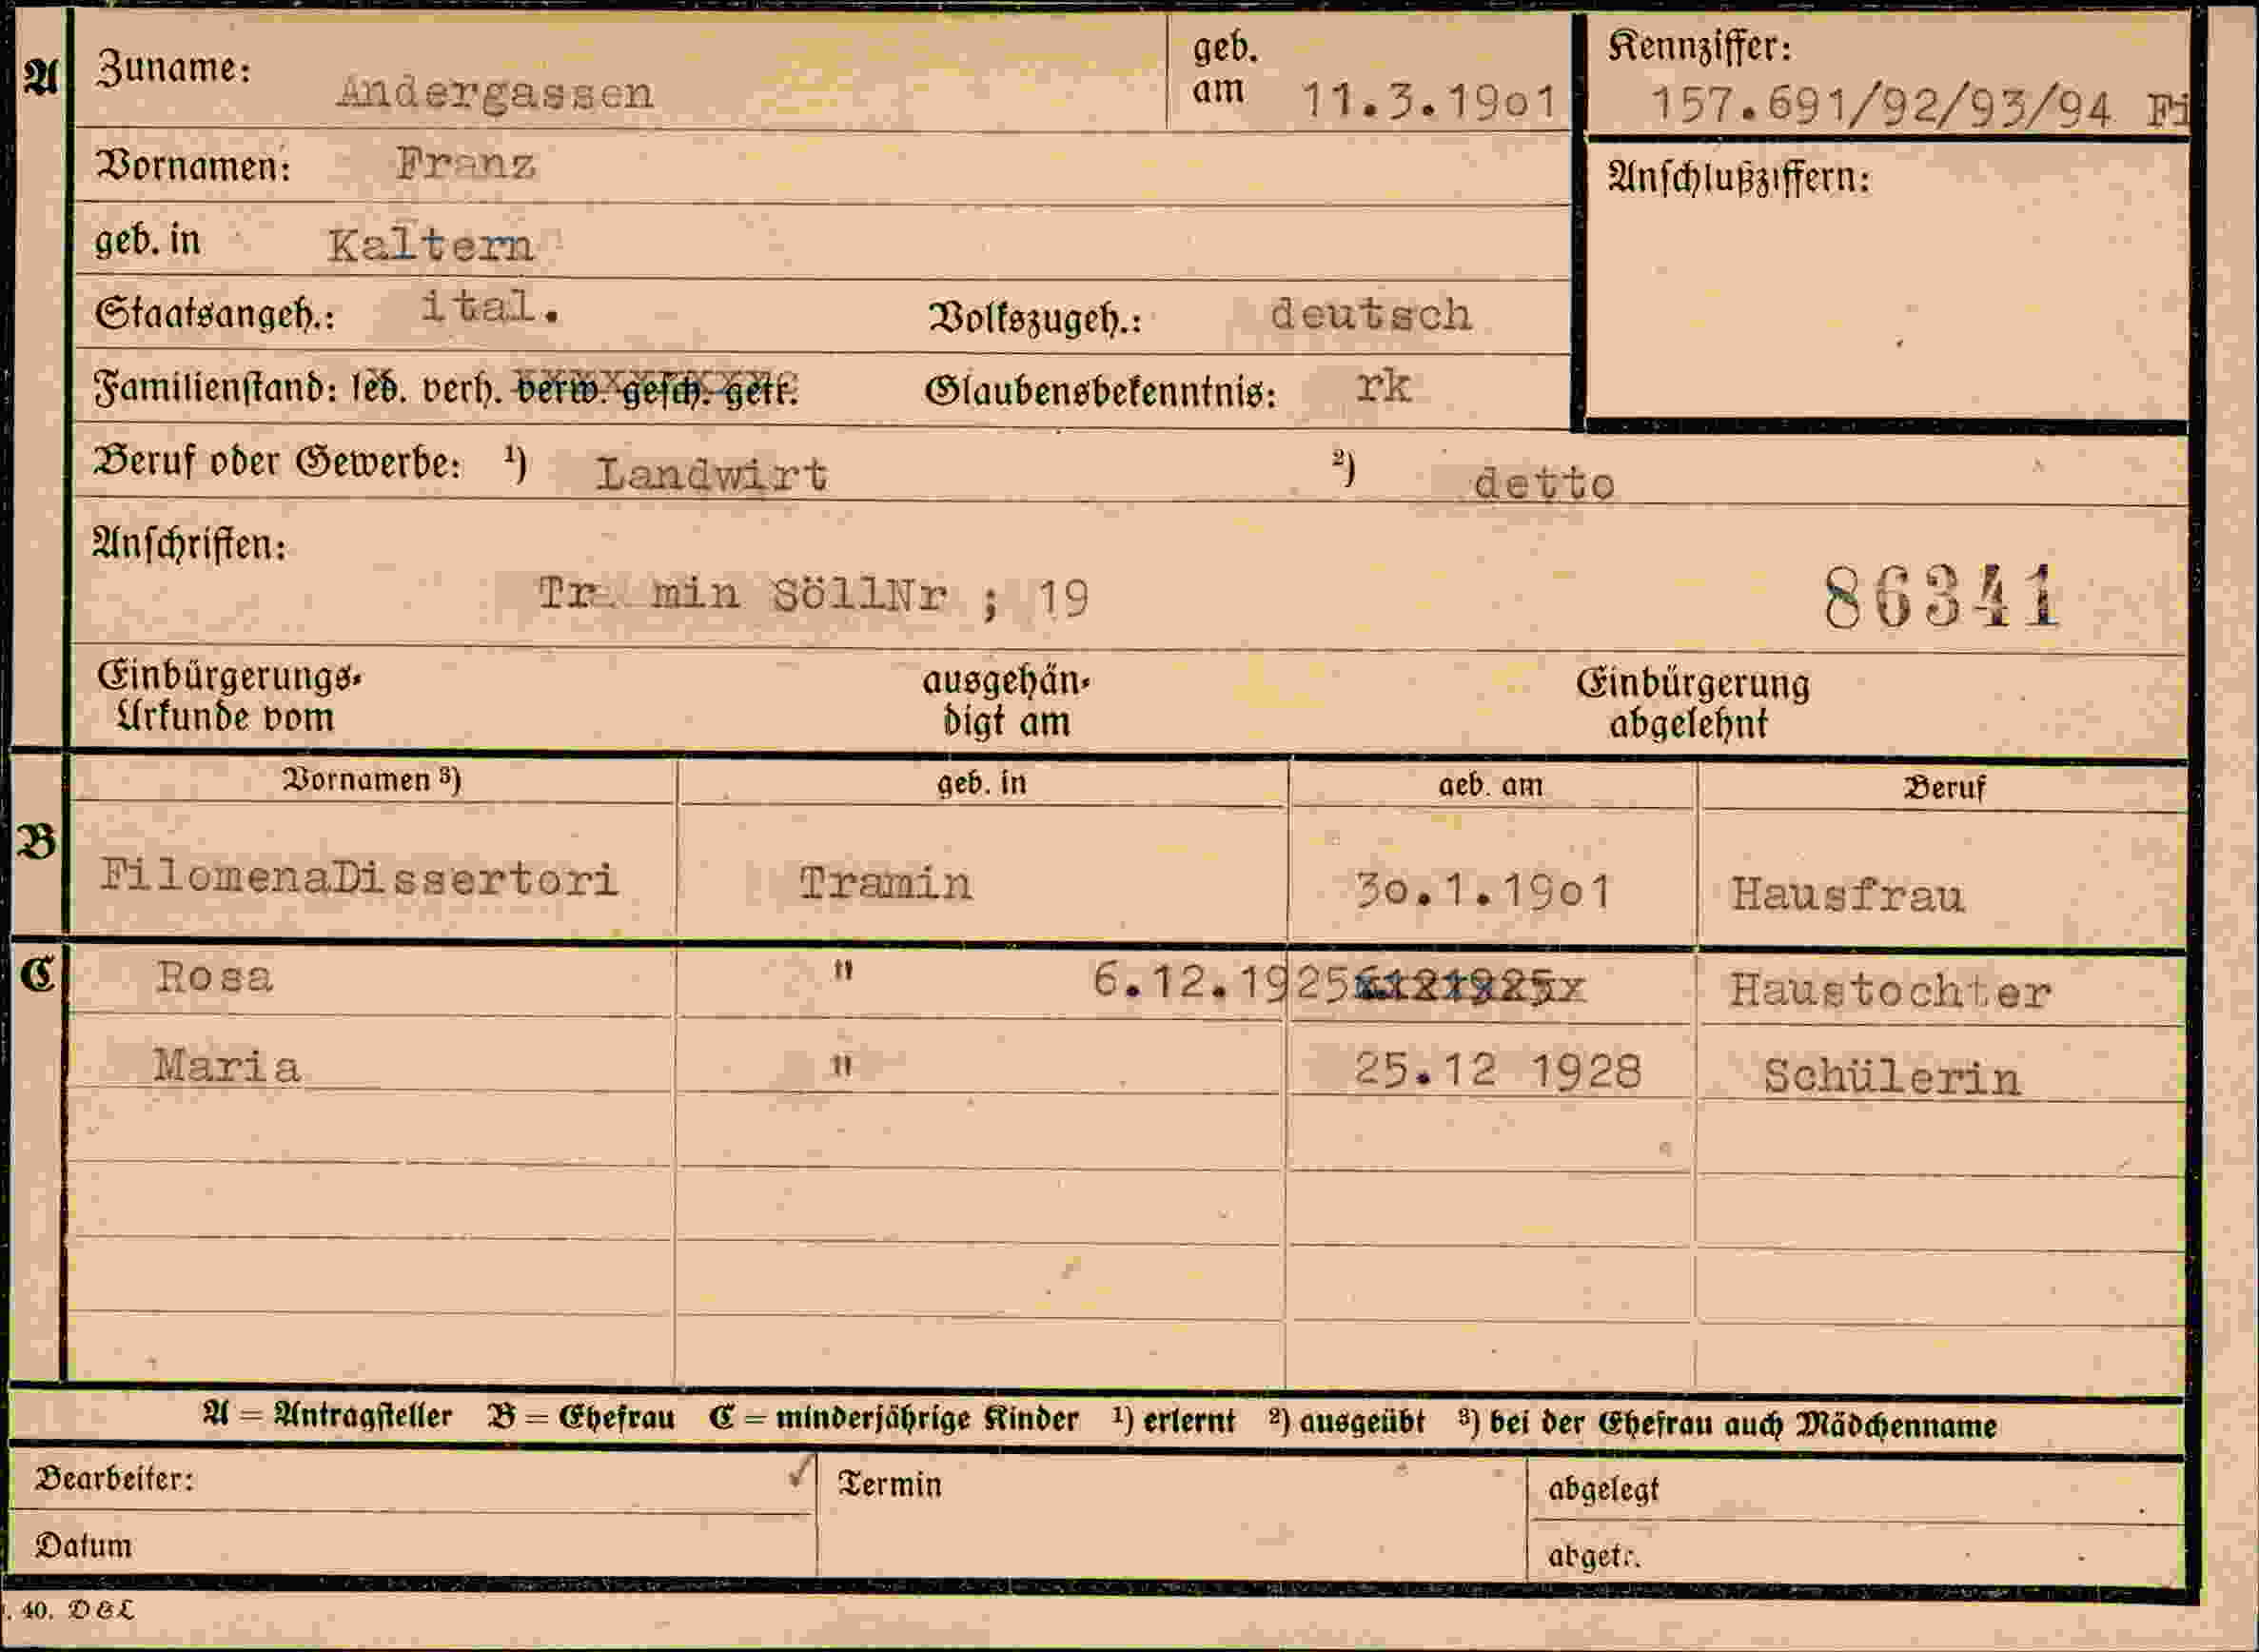 A Zuname: Andergassen geb. am 11.3.19o1 Kennziffer:
157.691/92/93/94 Fi
Vornamen: Franz Anschlußziffern:
geb. in Kaltern
Staatsangeh.: ital. Volkszugeh.: deutsch
Familienstand: led. verh. verw. gesch. getr. Glaubensbekenntnis: rk
Beruf oder Gewerbe: 1) Landwirt 2) detto
Anschriften:
Tra min SöllNr ; 19 86341
Einbürgerungs- ausgehän- Einbürgerung
Urkunde vom digt am abgelehnt
Vornamen 3) geb. in geb. am Beruf
B FilomenaDissertori Tramin 3o.1.19o1 Hausfrau
C Rosa " 6.12.1925 Haustochter
Maria " 25.12 1928 Schülerin
A = Antragsteller B = Ehefrau C = minderjährige Kinder 1) erlernt 2) ausgeübt 3) bei der Ehefrau auch Mädchenname
Bearbeiter: Termin abgelegt
Datum abgetr.
. 40. D&L